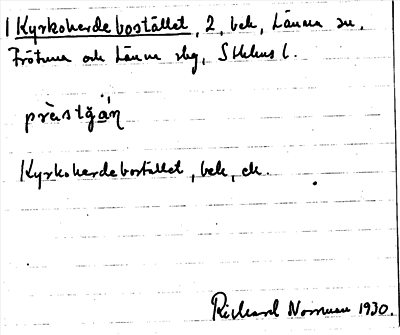 Kyrkoherdebostället, 2, bek, Länna sn,
Frötuna och Länna skg, Sthlms l.
prästgån
Kyrkoherdebostället, bek, ek.
Richard Norrman 1930.